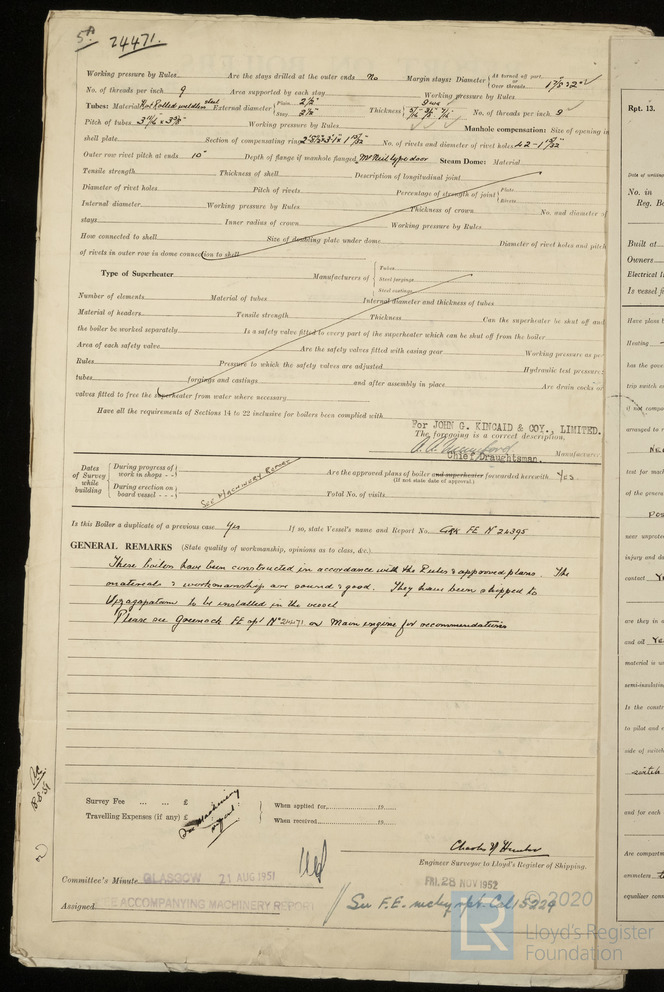 5a 24471.
Working pressure by Rules Are the stays drilled at the outer ends No Margin stays: Diameter { At turned off part, or Over threads 1 7/8" 2"
No. of threads per inch 9 Area supported by each stay Working pressure by Rules
Tubes: Material Hot Rolled weldless steel External diameter { Plain 2 1/2" Stay 2 1/2" Thickness { 9 WG No. of threads per inch 9
Pitch of tubes Working pressure by Rules Manhole compensation: Size of opening in
shell plate Section of compensating ring No. of rivets and diameter of rivet holes 42 -
Outer row rivet pitch at ends 10" Depth of flange if manhole flanged McNeil type door Steam Dome: Material
Tensile strength Thickness of shell Description of longitudinal joint
Diameter of rivet holes Pitch of rivets Percentage of strength of joint { Plate Rivets
Internal diameter Working pressure by Rules Thickness of crown No. and diameter of
stays Inner radius of crown Working pressure by Rules
How connected to shell Size of doubling plate under dome Diameter of rivet holes and pitch
of rivets in outer row in dome connection to shell
Type of Superheater Manufacturers of { Tubes Steel forgings Steel castings
Number of elements Material of tubes Internal diameter and thickness of tubes
Material of headers Tensile strength Thickness Can the superheater be shut off and
the boiler be worked separately Is a safety valve fitted to every part of the superheater which can be shut off from the boiler
Area of each safety valve Are the safety valves fitted with easing gear Working pressure as per
Rules Pressure to which the safety valves are adjusted Hydraulic test pressure:
tubes forgings and castings and after assembly in place Are drain cocks or
valves fitted to free the superheater from water where necessary
Have all the requirements of Sections 14 to 22 inclusive for boilers been complied with
For JOHN G. KINCAID & COY., LIMITED.
The foregoing is a correct description,
Chief Draughtsman. Manufacturer
Dates of Survey while building { During progress of work in shops - - During erection on board vessel - - - See Machinery Report
Are the approved plans of boiler and superheater forwarded herewith Yes
(If not state date of approval.)
Total No. of visits
Is this Boiler a duplicate of a previous case Yes If so, state Vessel's name and Report No. GRK FE No 24395
GENERAL REMARKS (State quality of workmanship, opinions as to class, &c.)
These boilers have been constructed in accordance with the Rules & approved plans. The
materials & workmanship are sound & good. They have been shipped to
Vizagapatam to be installed in the vessel
Please see Greenock FE rpt No 24471 on Main engine for recommendations
Survey Fee ... ... £
Travelling Expenses (if any) £
See Machinery report.
When applied for 19
When received 19
Charles W Hunter
Engineer Surveyor to Lloyd's Register of Shipping.
Committee's Minute GLASGOW 21 AUG 1951
FRI. 28 NOV 1952
Assigned SEE ACCOMPANYING MACHINERY REPORT
See F.E. mchy rpt. Cal 5229
© 2020
LR Lloyd's Register
Foundation
Rpt. 13.
No. in
Reg. Bo
Built at
Owners
Electrical I
Is vessel f
Have plans b
Heating
has the gove
trip switch o
if not compo
arranged to r
test for mach
of the genera
Pos
near unprotec
injury and da
contact Ye
are they in a
and oil Yes
material is u
semi-insulatin
Is the constr
to pilot and e
side of switch
switch
and for each
Are compartm
ammeters
equaliser conn